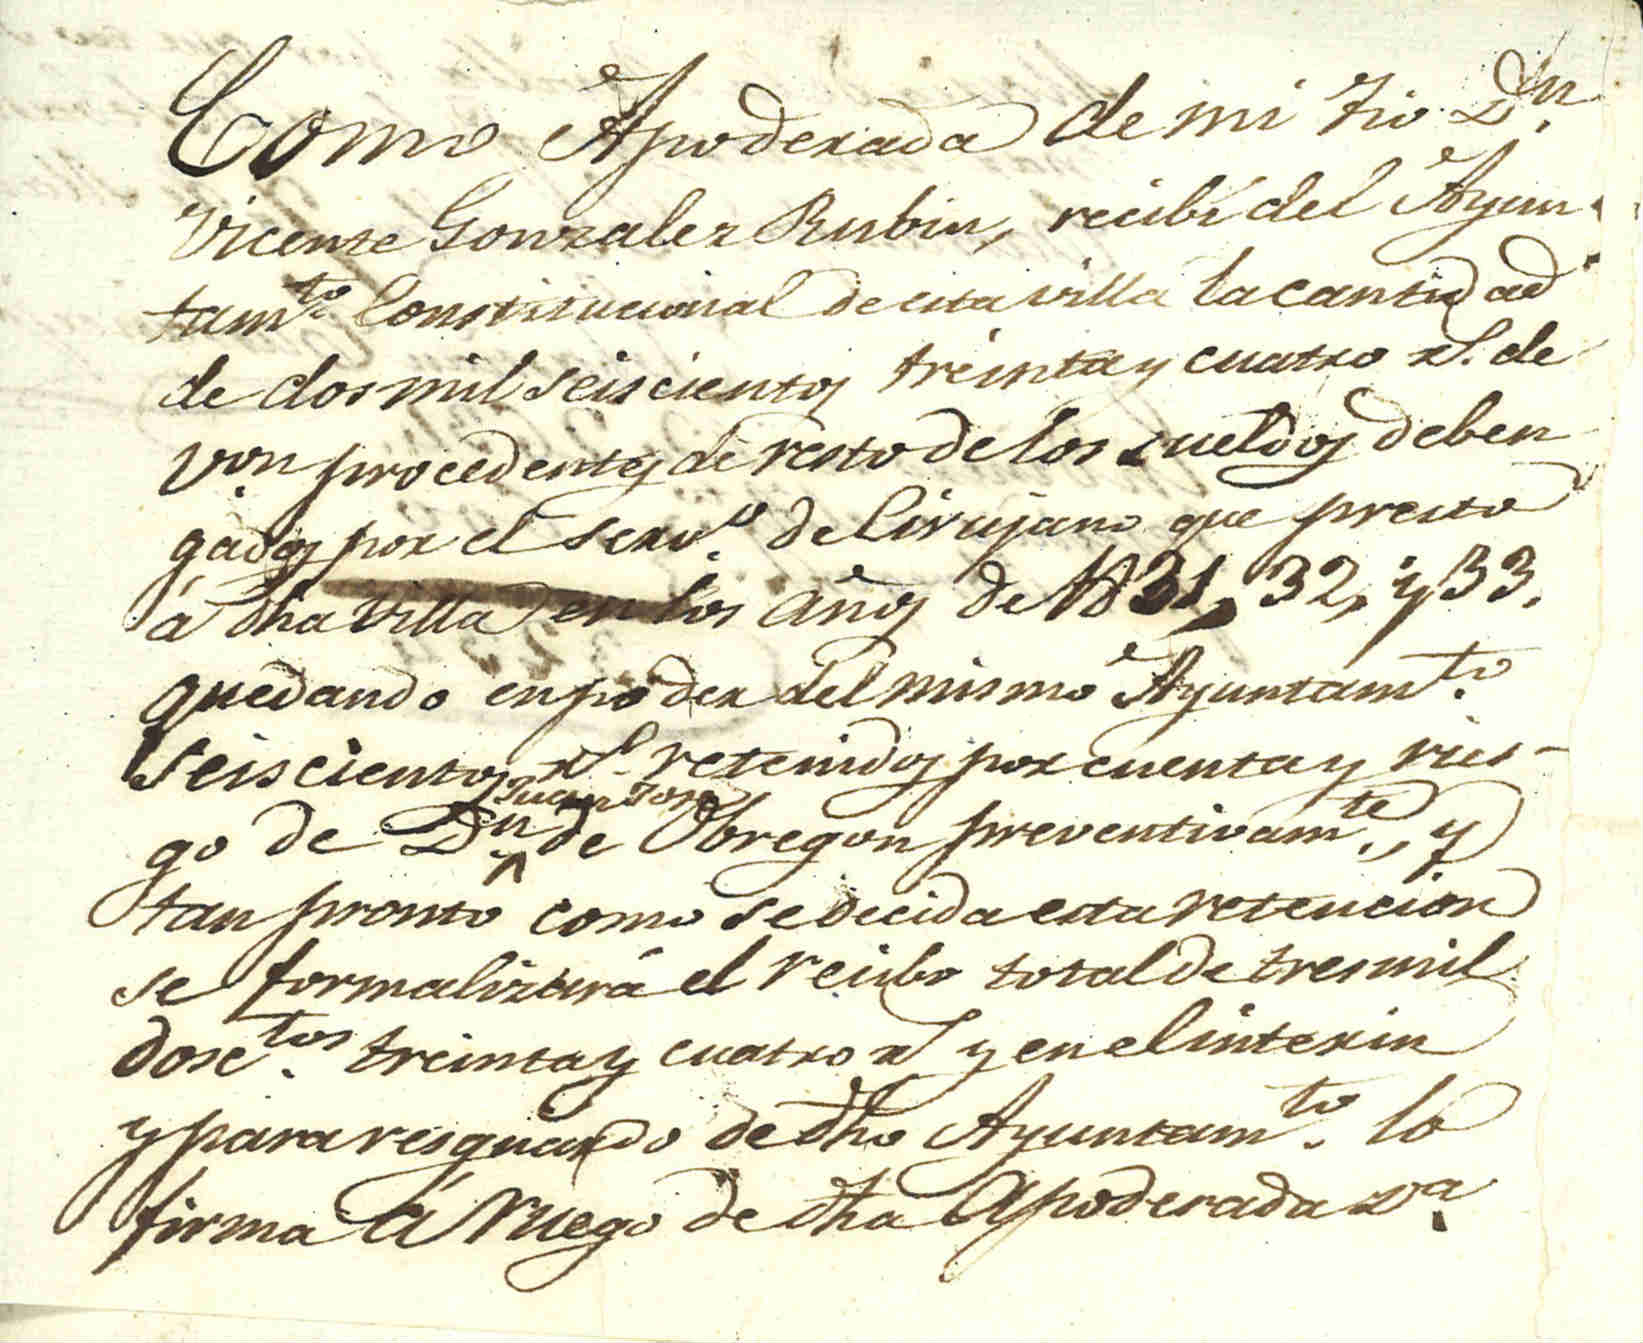 Como Apoderada de mi tio Dn.
Vicente Gonzalez Rubin, recibí del Ayun-
tamto. Constitucional de esta villa la cantidad
de dos mil seiscientos treinta y cuatro rl. de
von procedentes de resto de los sueldos deben
gados por el servo. de Cirujano que presto
á dha villa en los años de 1831, 32, y 33.
quedando en poder del mismo Ayuntamto.
Seiscientos rl. retenidos por cuenta y ries-
go de Dn. Juan Jose de Obregon preventivamte., y
tan pronto como se decida esta retencion
se formalizará el recibo total de tres mil
dosctos. treinta y cuatro rl y en el interin
y para resguardo de dho Ayuntamto. lo
firma á ruego de dha Apoderada Da.